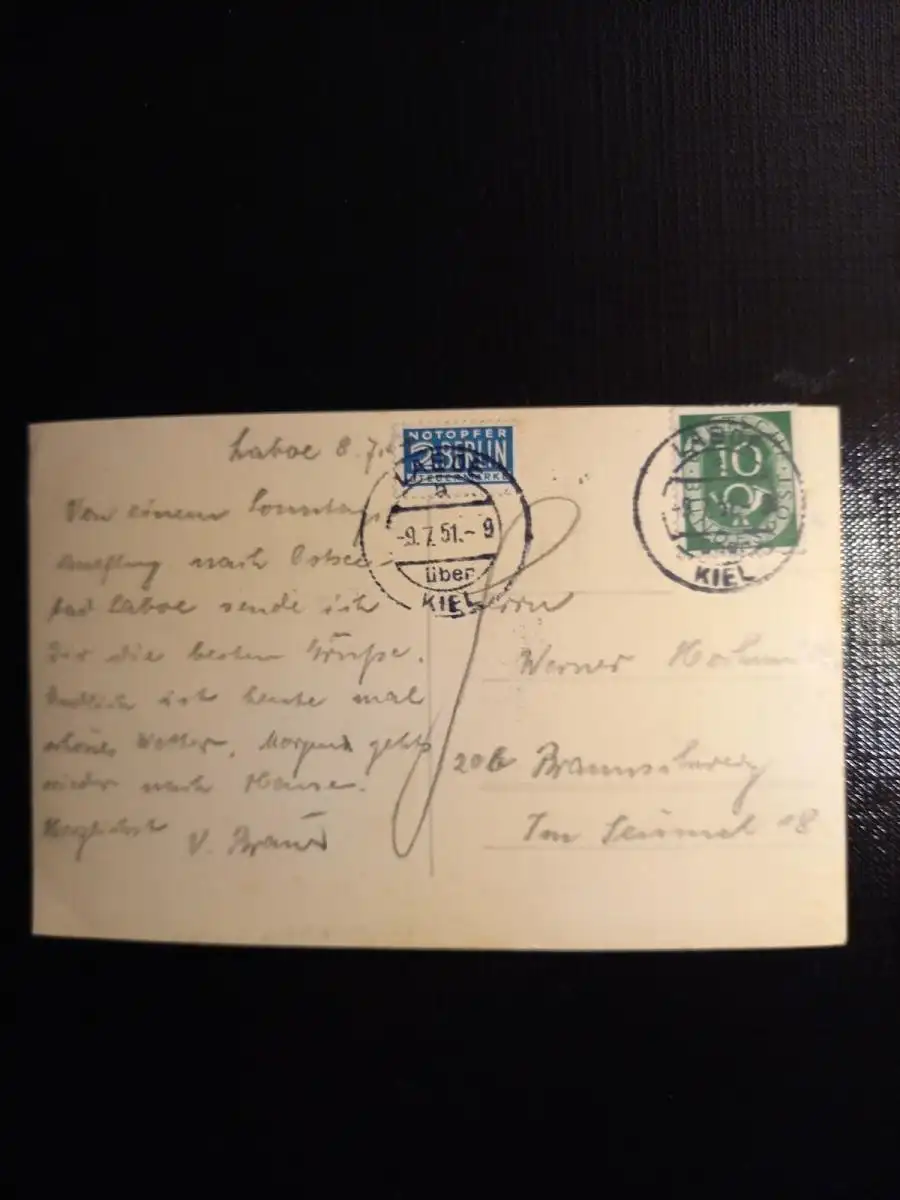 Laboe 8.7.
Von einem Sonntags
Ausflug nach Ostsee
bad Laboe sende ich
Dir die besten Grüße.
Endlich ist heute mal
schönes Wetter. Morgen gehts
wieder nach Hause.
Herzlichst
V.
NOTOPFER
2 BERLIN
STEUERMARKE
LABOE
a
-9.7.51.-9
über
KIEL
DEUTSCHE BUNDESPOST
10
LABOE
KIEL
Herrn
Werner
20b Braunschweig
Im 18